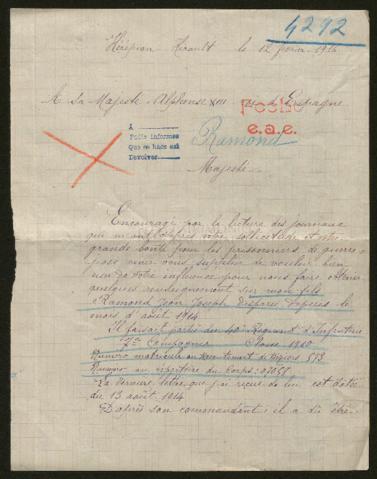 4292
Hérépian Hérault le 12 février 1916
A Sa Majesté Alphonse XIII roi d'Espagne
e.a.e.
A
Pídle informes
Que se hace así
Devolver
Ramond
Majesté
Encouragé par la lecture des journaux
qui votre sollicitude et votre
grande bonté pour les prisonniers de guerre
j'ose venir vous supplier de vouloir bien
user de votre influence pour nous faire obtenir
quelques renseignements sur mon fils
Ramond Jean Joseph disparu depuis le
mois d'août 1914
Il faisait partie du 40e Régiment d'Infanterie
7e Compagnie Classe 1910
Numéro matricule au recrutement de Béziers 513
Numéro au répertoire du Corps: 07055
La dernière lettre que j'ai reçue de lui est datée
du 13 août 1914
D'après son commandant il a dû être